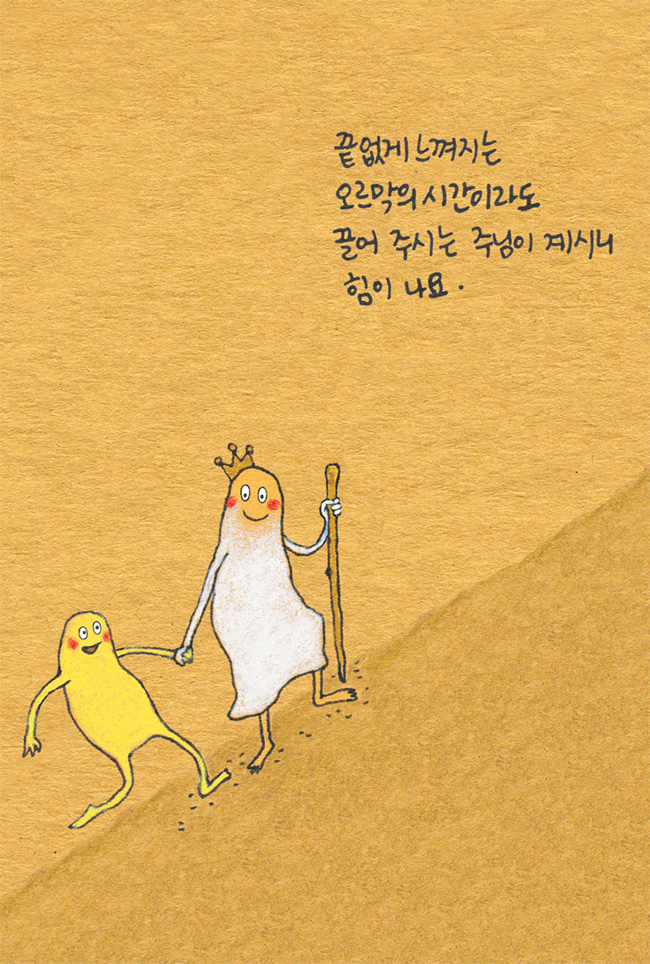 끝없게 느껴지는
오르막의 시간이라도
끌어 주시는 주님이 계시니
힘이 나요.